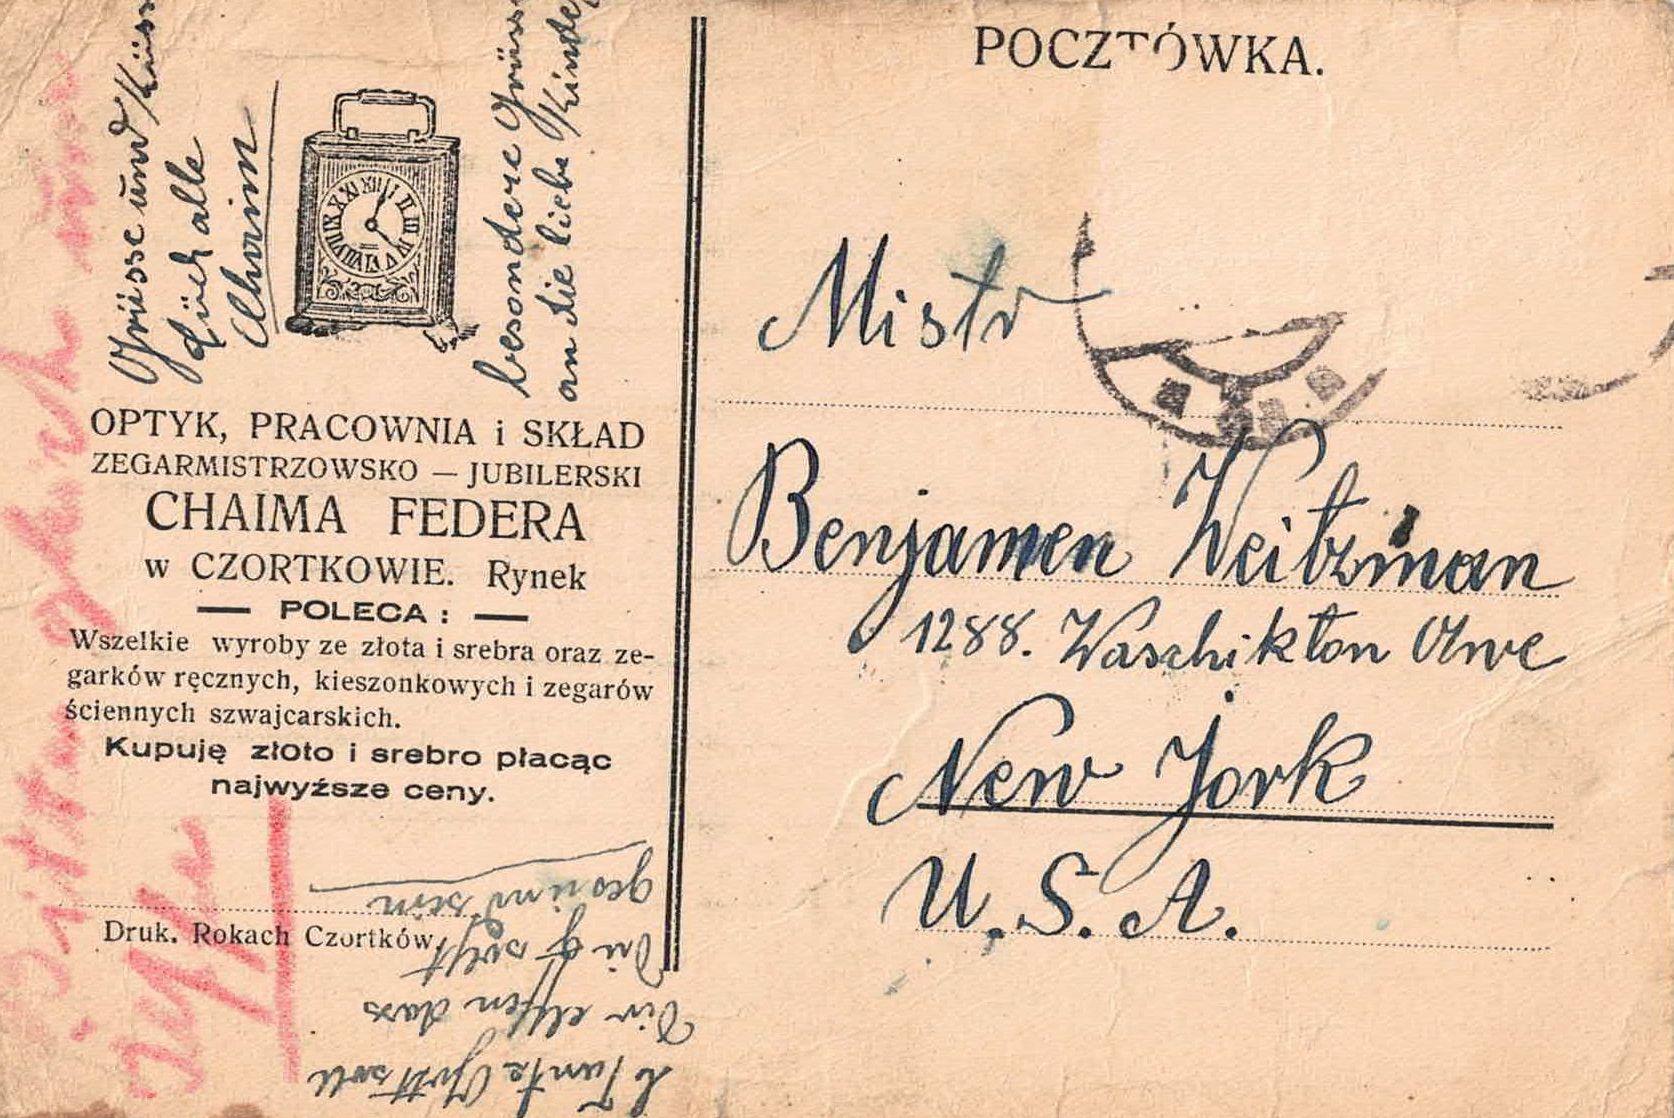 POCZTÓWKA.
Grüsse und Küsse
Euch alle
Chaim
besondere Grüsse
an die liebe Kinder
OPTYK, PRACOWNIA i SKŁAD
ZEGARMISTRZOWSKO — JUBILERSKI
CHAIMA FEDERA
w CZORTKOWIE. Rynek
— POLECA : —
Wszelkie wyroby ze złota i srebra oraz ze-
garków ręcznych, kieszonkowych i zegarów
ściennych szwajcarskich.
Kupuję złoto i srebro płacąc
najwyższe ceny.
Druk. Rokach Czortków.
L Tante Gott soll
Dir elfen dass
Du solst
gesund sein
Mistr
Benjamen Weitzman
1288. Waschikton Awe
New Jork
U. S. A.